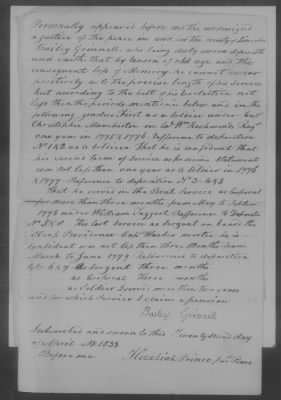 Personally appeared before me the undersigned
a justice of the peace in and for the county of Lincoln
Bailey Grinnell who being duly sworn deposeth
and saith that by reason of old age and the
consequent loss of Memory he cannot swear
positively as to the precise length of his service
but according to the best of his recollection not
less then the periods mentioned below and in the
following grades. First as a Soldier under Capt
Christopher Manchester in Col Wm Richmonds Regt
one year in 1775 & 1776 Refferance to deposition
No 1 & 2 as a Soldier. That he is confident that
his various terms of Service as per his Statement
was not less then one year as a Soldier in 1776
& 1777 Refferance to deposition No 3-4 & 5
That he served in the Boat Service as Corporal
for more than three months from May to
1778 under William Taggart Refferance to Deposito
No 5 & 8 His last Service as Sergant on board the
Sloop Providence Capt months he is
confident was not less then three Months from
March to June 1779 Refferance to deposition
No 6 & 7 As Sergent three months
as Corporal three months
as Soldier Served more then two years
and for which Service I claim a pension
Bailey Grinnell
Subscribed and sworn to this Twenty Second day
of April AD 1833
Before me Hezekiah Prince, Jus Peace